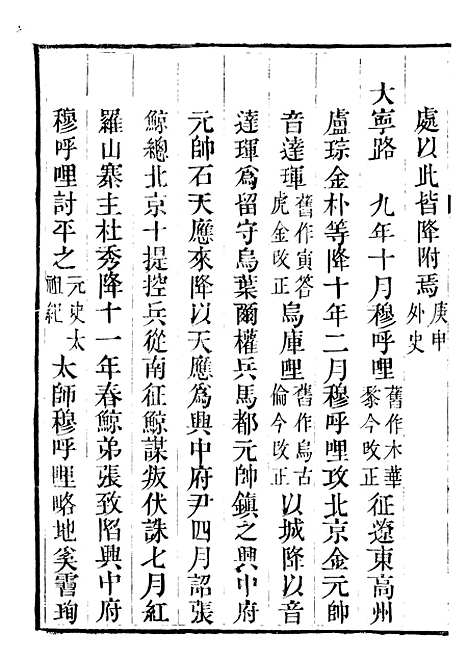 處以此皆降附焉庚申外史
大寧路　九年十月穆呼哩舊作木華黎今改正征遼東高州
盧琮金朴等降十年二月穆呼哩攻北京金元帥
音達琿舊作寅答虎今改正烏庫哩舊作烏古倫今改正以城降以音
達琿為留守烏葉爾權兵馬都元帥鎮之興中府
元帥石天應來降以天應為興中府尹四月詔張
鯨總北京十提控兵從南征鯨謀叛伏誅七月紅
羅山寨主杜秀降十一年春鯨弟張致陷興中府
穆呼哩討平之元史太祖紀太師穆呼哩略地奚霫珣